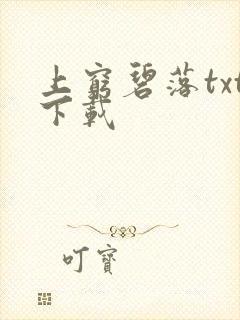 上窮碧落txt
下載
叮寶